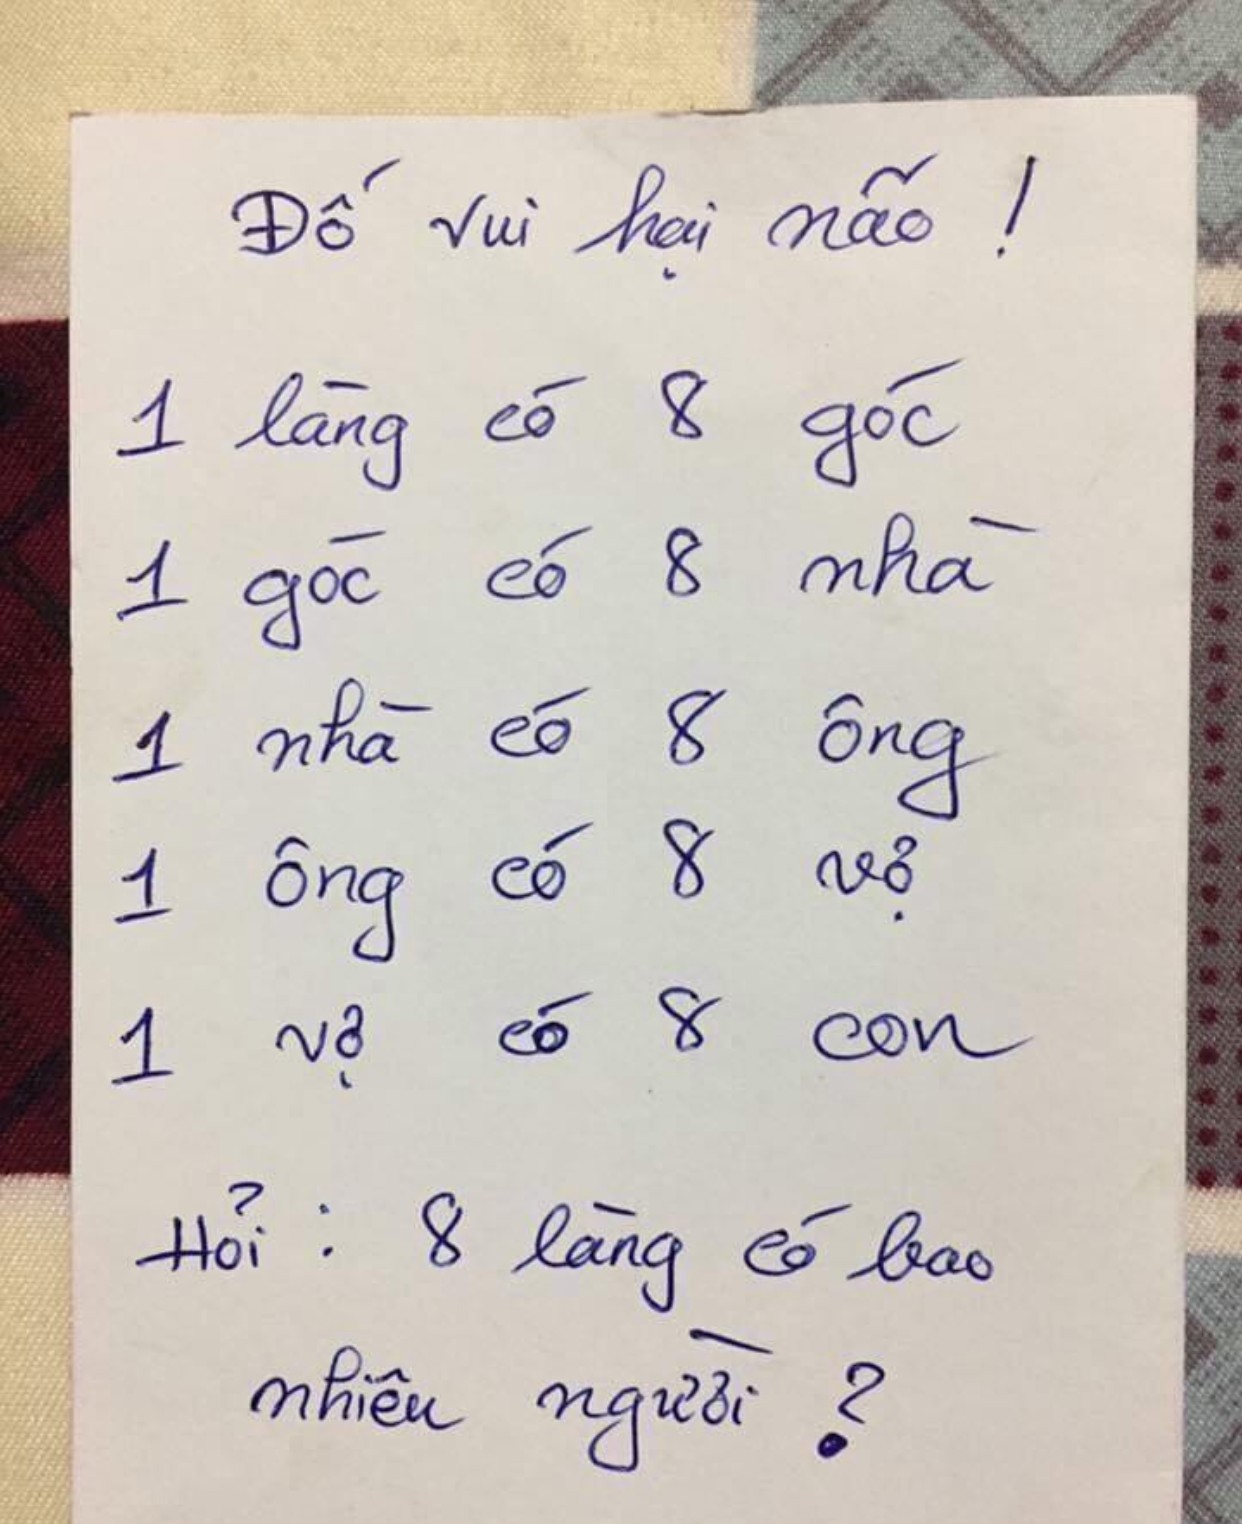 Đố vui hại não !
1 làng có 8 gốc
1 gốc có 8 nhà
1 nhà có 8 ông
1 ông có 8 vợ
1 vợ có 8 con
Hỏi : 8 làng có bao
nhiêu người ?